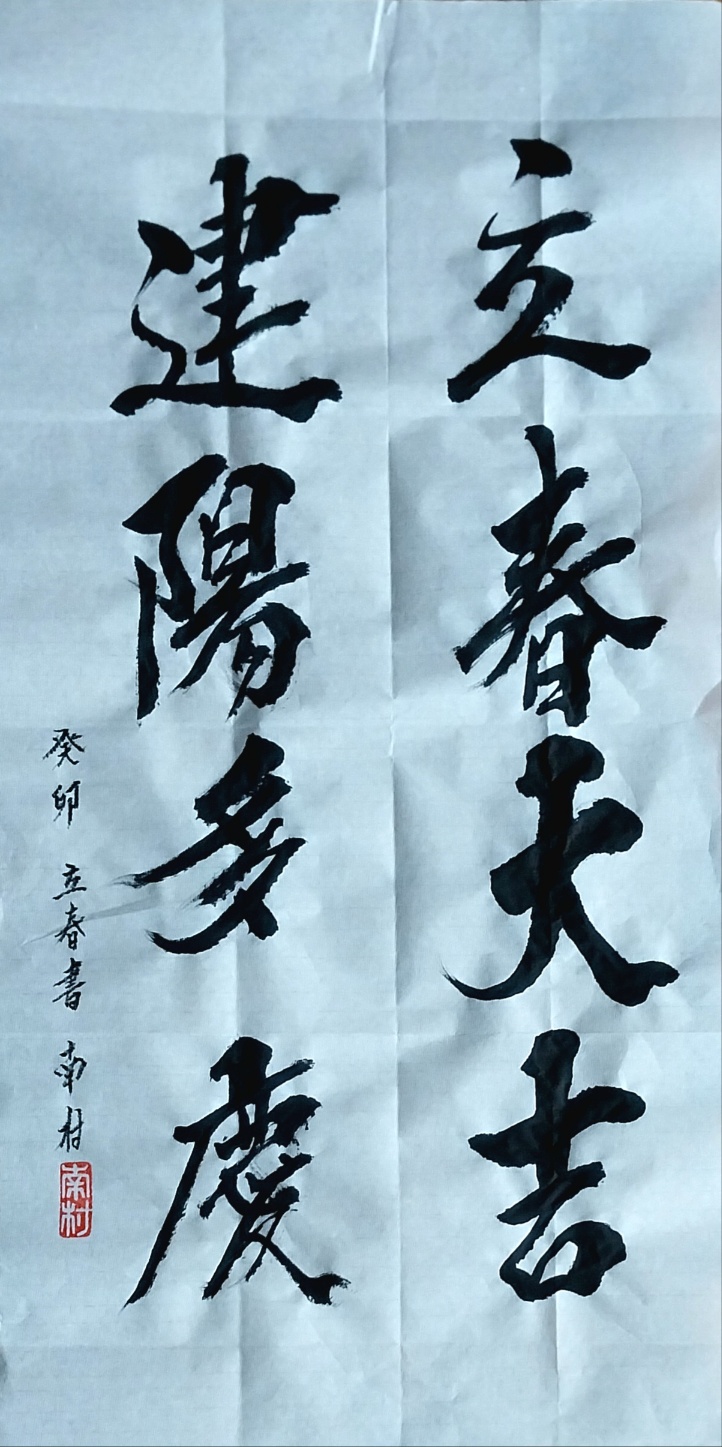 立春大吉
建陽多慶
癸卯 立春書 南村
南村